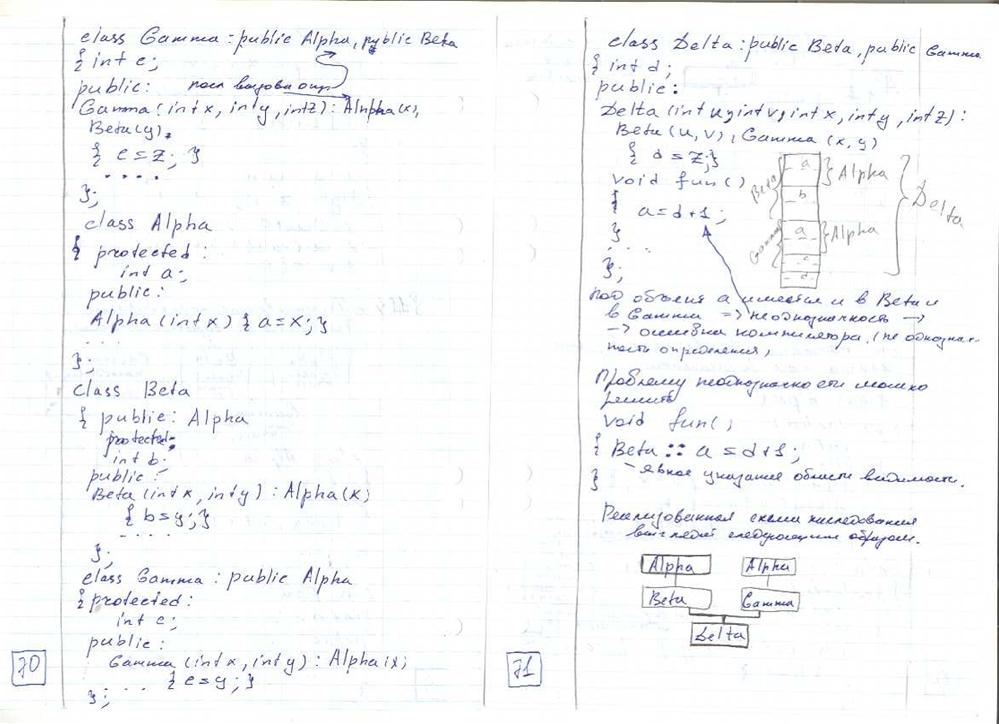 class Gamma : public Alpha, public Beta
{ int c;
public: посл вызова
Gamma (int x, int y, int z) : Alnpha(x),
Beta(y),
{ c = z; }
. . . .
};
class Alpha
{ protected :
int a;
public :
Alpha (int x) { a = x; }
. . . .
};
class Beta
{ public : Alpha
protected:
int b;
public :
Beta (int x, int y) : Alpha(x)
{ b = y; }
. . . .
};
class Gamma : public Alpha
{ protected:
int c;
public :
Gamma (int x, int y) : Alpha(x)
. . . { c = y; }
};
70
class Delta : public Beta, public Gamma
{ int d;
public :
Delta (int u, int v, int x, int y, int z) :
Beta (u, v), Gamma (x, y)
{ d = z; }
void fun()
{
a = d + 1 ;
}
. . .
};
Beta
Gamma
a
b
a
c
d
Alpha
Alpha
Delta
под объект a имеется и в Beta и
в Gamma => неоднозначность →
→ ошибка компилятора. (не однознач-
ность определения)
Проблему неоднозначности можно
решить
void fun()
{ Beta :: a = d + 1;
} - явное указание области видимости.
Реализованная схема наследования
выглядит следующим образом.
Alpha Alpha
Beta Gamma
Delta
71